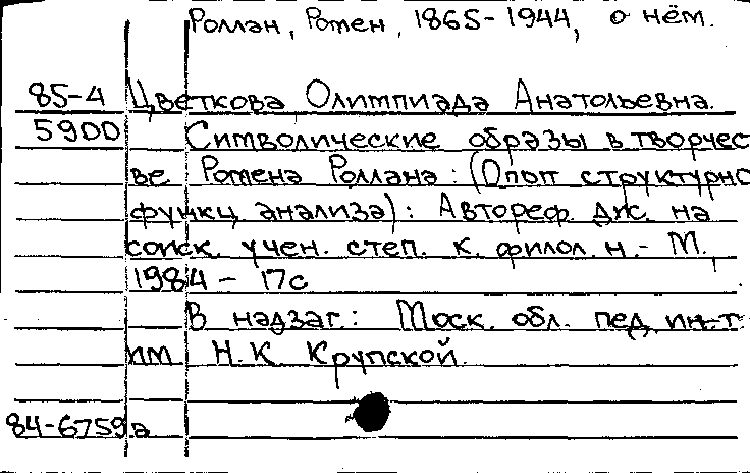 Роллан, Ромен, 1865-1944, о нём.
85-4 Цветкова Олимпиада Анатольевна.
5900 Символические образы в творчес
ве Ромена Роллана: (Опыт структурно
функц. анализа): Автореф. дис. на
соиск. учен. степ. к. филол. н. - М.,
1984 - 17с
В надзаг.: Моск. обл. пед. ин-т
им Н.К Крупской.
84-6759а